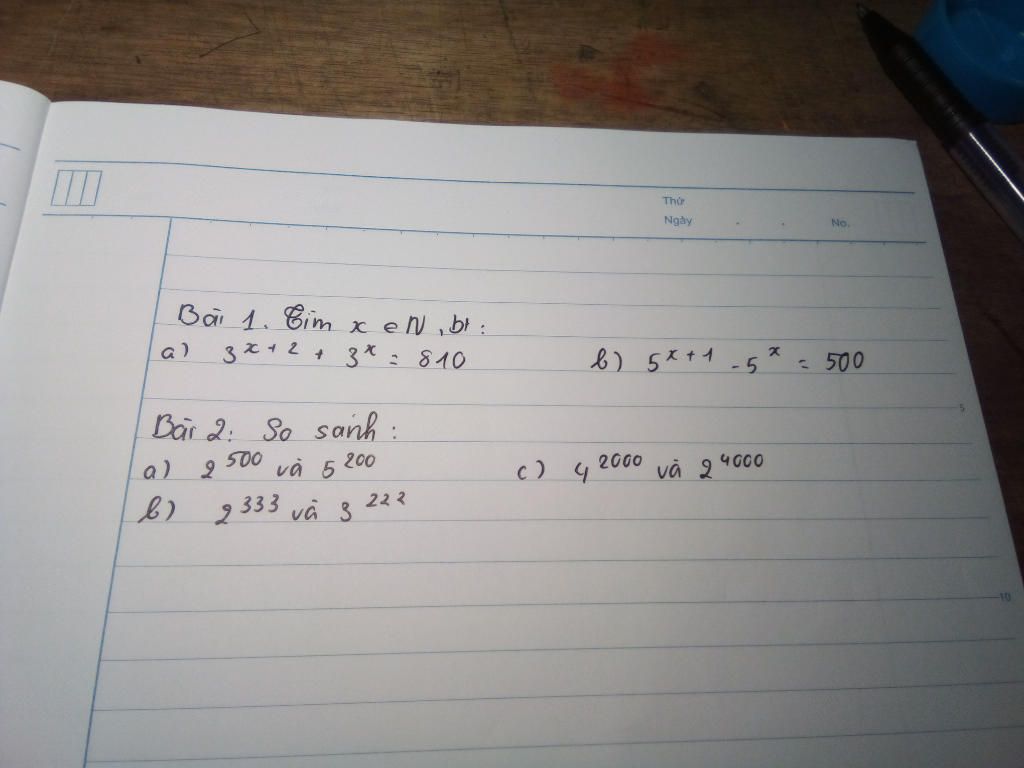 Thứ
Ngày . . No.
Bài 1. Tìm x ∈ N, bt:
a) 3^{x+2} + 3^x = 810 b) 5^{x+1} - 5^x = 500
5
Bài 2: So sánh:
a) 2^{500} và 5^{200} c) 4^{2000} và 2^{4000}
b) 2^{333} và 3^{222}
10